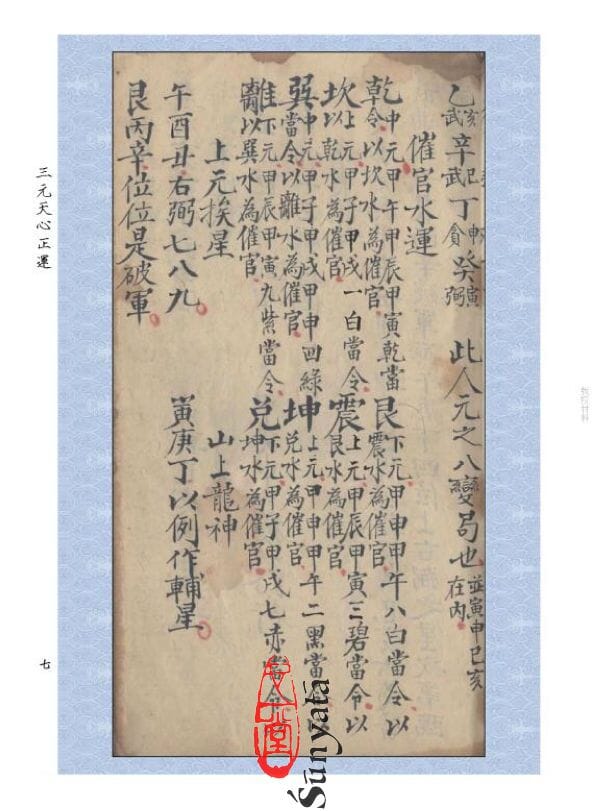 乙亥武辛巳武丁申貪癸寅弼 此人元之八變局也並寅申巳亥在内
催官水運
乾中元甲午甲辰甲寅乾當令以坎水為催官
艮下元甲申甲午八白當令以震水為催官
坎上元甲子甲戌一白當令以乾水為催官
震上元甲辰甲寅三碧當令以艮水為催官
巽中元甲子甲戌甲申四綠當令以離水為催官
坤上元甲申甲午二黑當令以兌水為催官
離下元甲辰甲寅九紫當令以巽水為催官
兌下元甲子甲戌七赤當令坤水為催官
上元挨星 山上龍神
午酉丑右弼七八九 寅庚丁以例作輔星
艮丙辛位位是破軍
三元天心正運
七
Śūnyatā